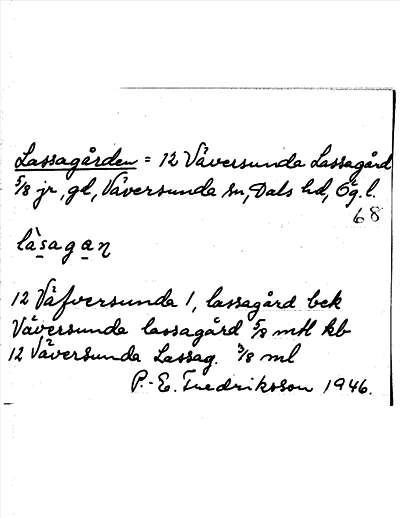 Lassagården = 12 Väversunda Lassagård
5/8 jr, gd, Väversunda sn, Dals hd, Ög. l.
68
làsagan
12 Väfversunda 1, lassagård bek
Väversunda lassagård 5/8 mtl kb
12 Väversunda Lassag. 3/8 ml
P.-E. Fredriksson 1946.